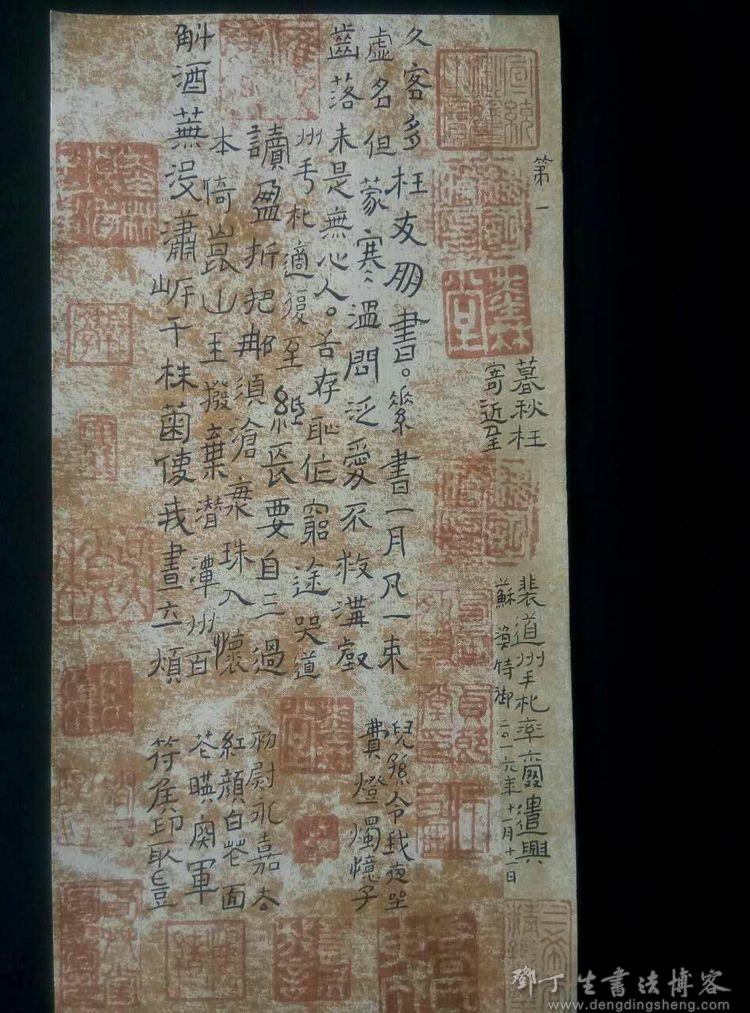 第一
暮秋枉裴道州手札率爾遣興
寄近呈蘇渙侍御二〇一六年十一月十一日
久客多枉友朋書。素書一月凡一束
虛名但蒙寒溫問泛愛不救溝壑
齒落未是無心人。舌存恥作窮途哭道
州手札適復至紙長要自三過
讀盈折把那須滄海珠入懷
本倚崑山玉撥棄潛潭州百
斛酒蕪沒瀟岸千株菊使我晝立煩
兒孫令我夜坐
費燈燭憶子
初尉永嘉去
紅顏白花面
花映肉軍
符侯印取豈
鄧丁生書法博客
www.dengdingsheng.com